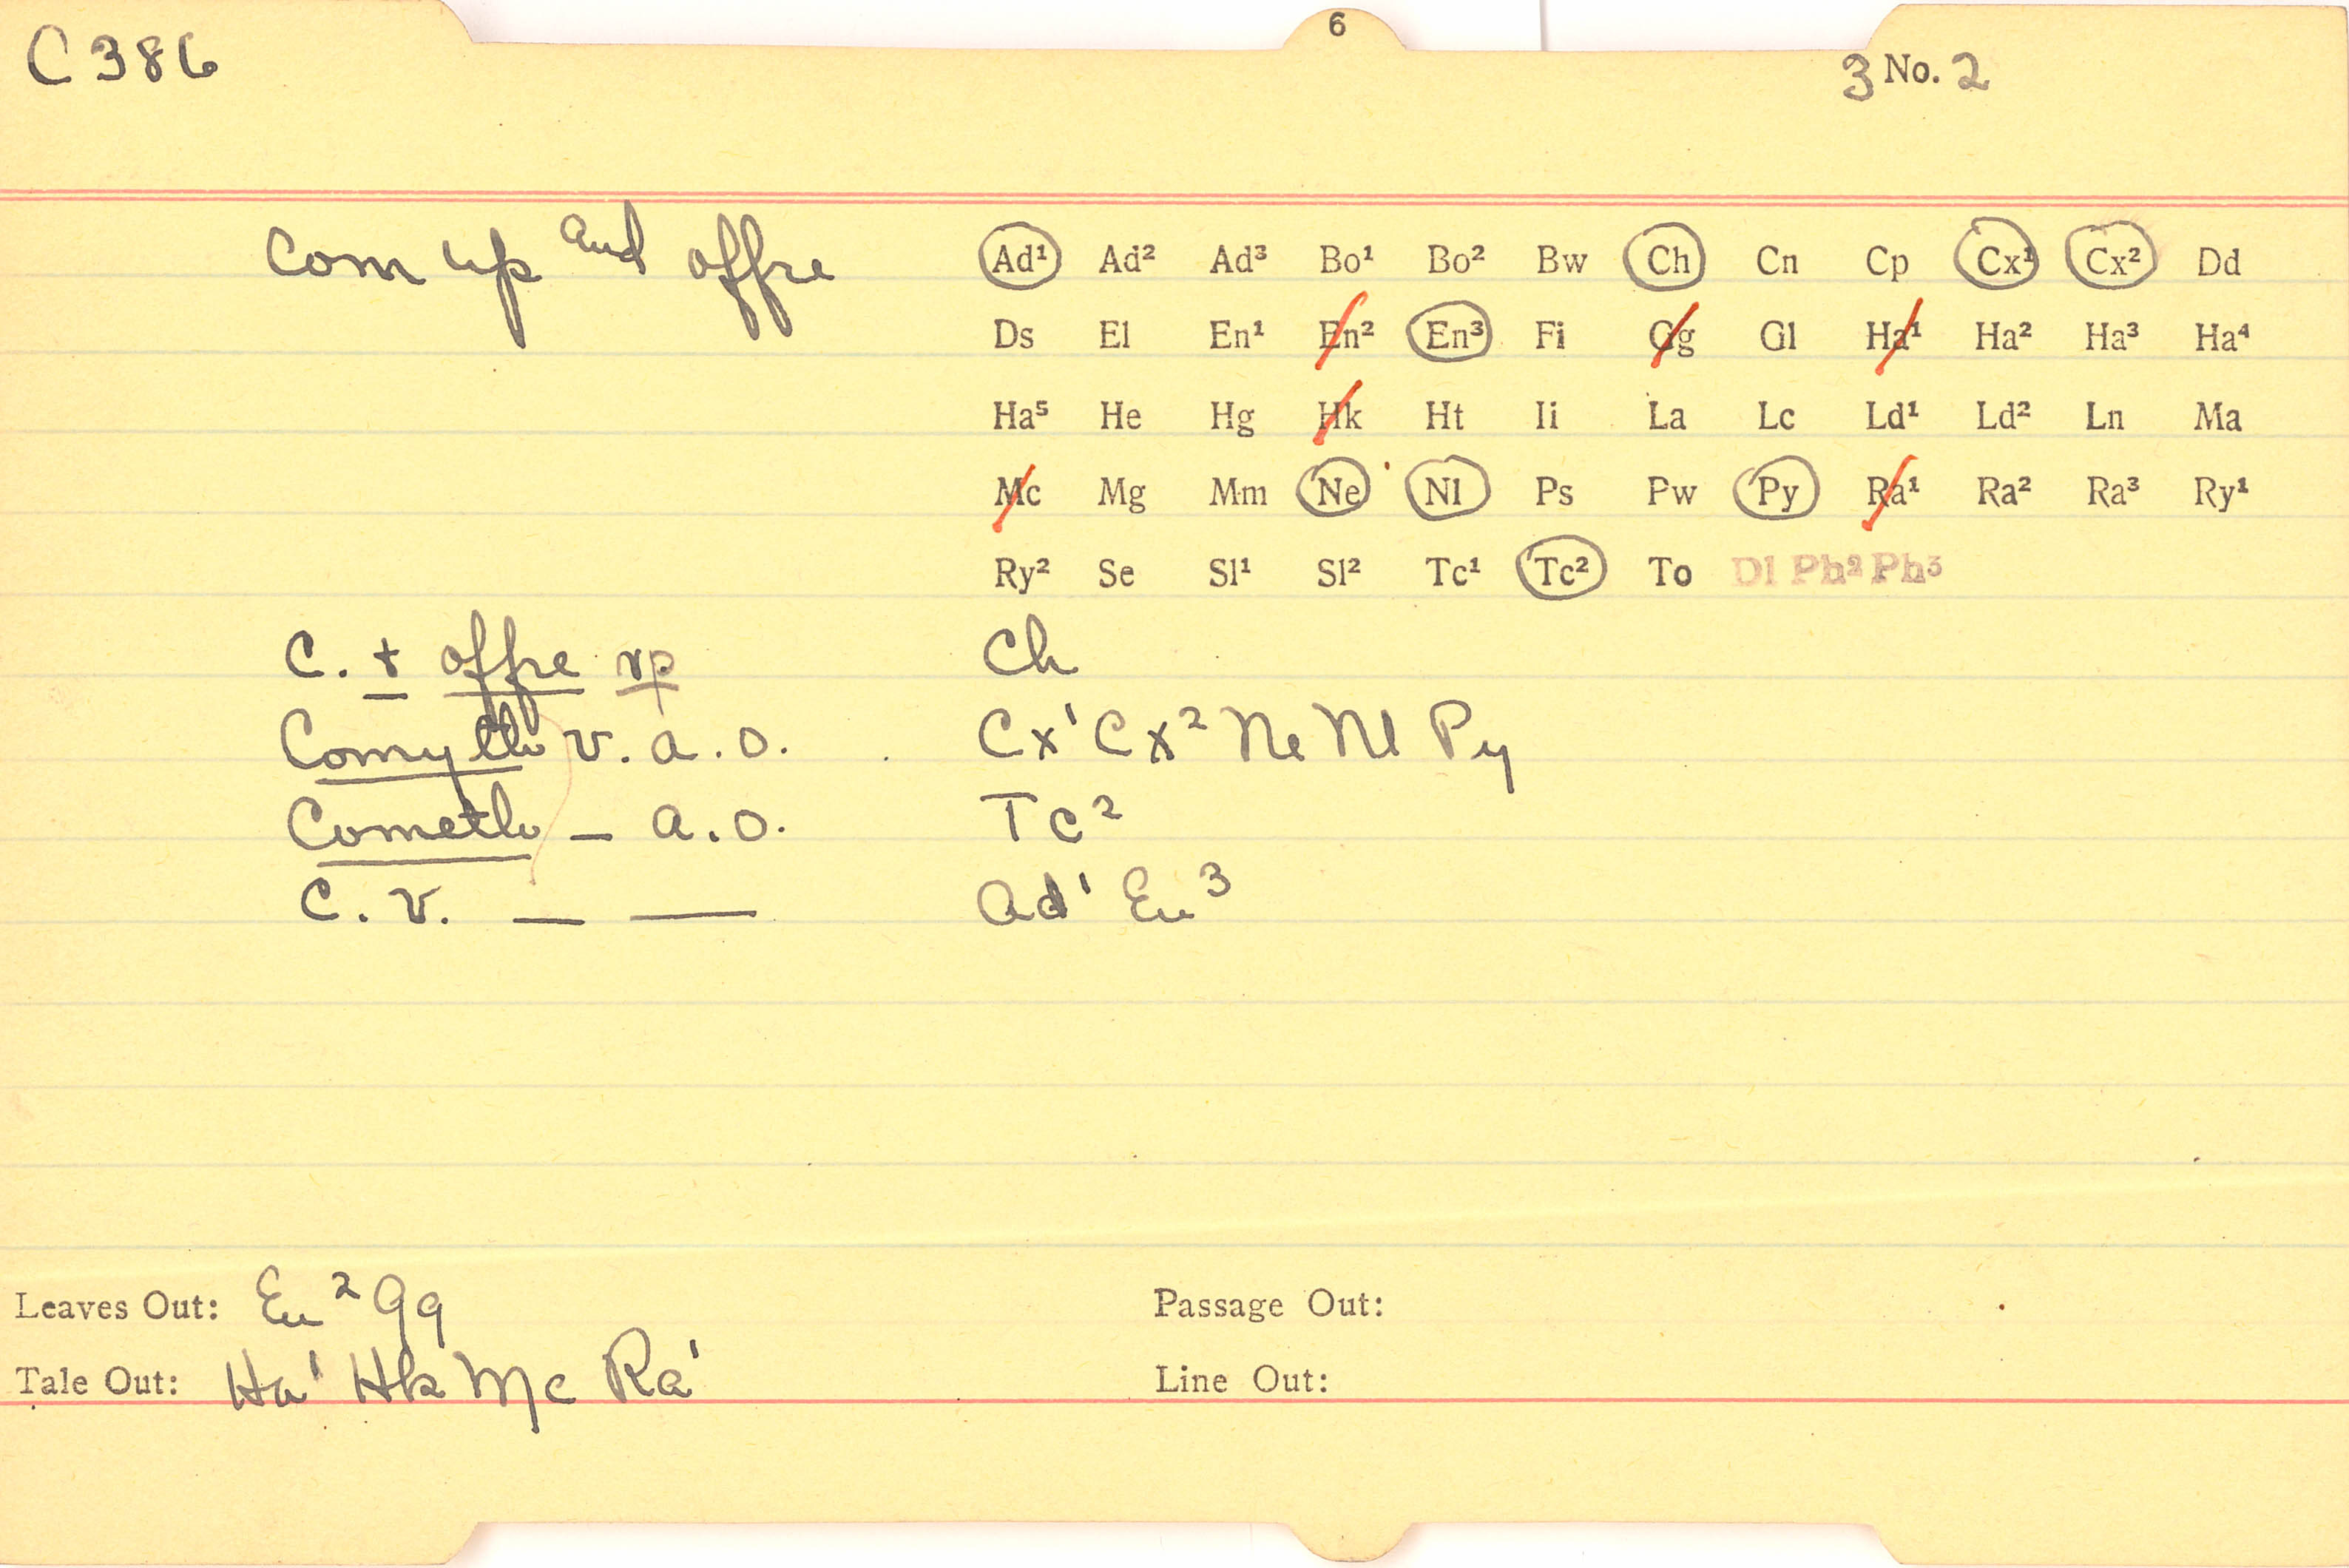 6
C 386
3 No. 2
Com up and offre
Ad¹ Ad² Ad³ Bo¹ Bo² Bw Ch Cn Cp Cx¹ Cx² Dd
Ds El En¹ En² En³ Fi Gg Gl Ha¹ Ha² Ha³ Ha⁴
Ha⁵ He Hg Hk Ht Ii La Lc Ld¹ Ld² Ln Ma
Mc Mg Mm Ne Nl Ps Pw Py Ra¹ Ra² Ra³ Ry¹
Ry² Se Sl¹ Sl² Tc¹ Tc² To Dl Ph² Ph³
C. + offre vp Ch
Comyth v. a. o. Cx¹ Cx² Ne Nl Py
Cometh — a. o. Tc²
C. v. — — Ad¹ En³
Leaves Out: En² Gg
Passage Out:
Tale Out: Ha¹ Hk Mc Ra¹
Line Out: